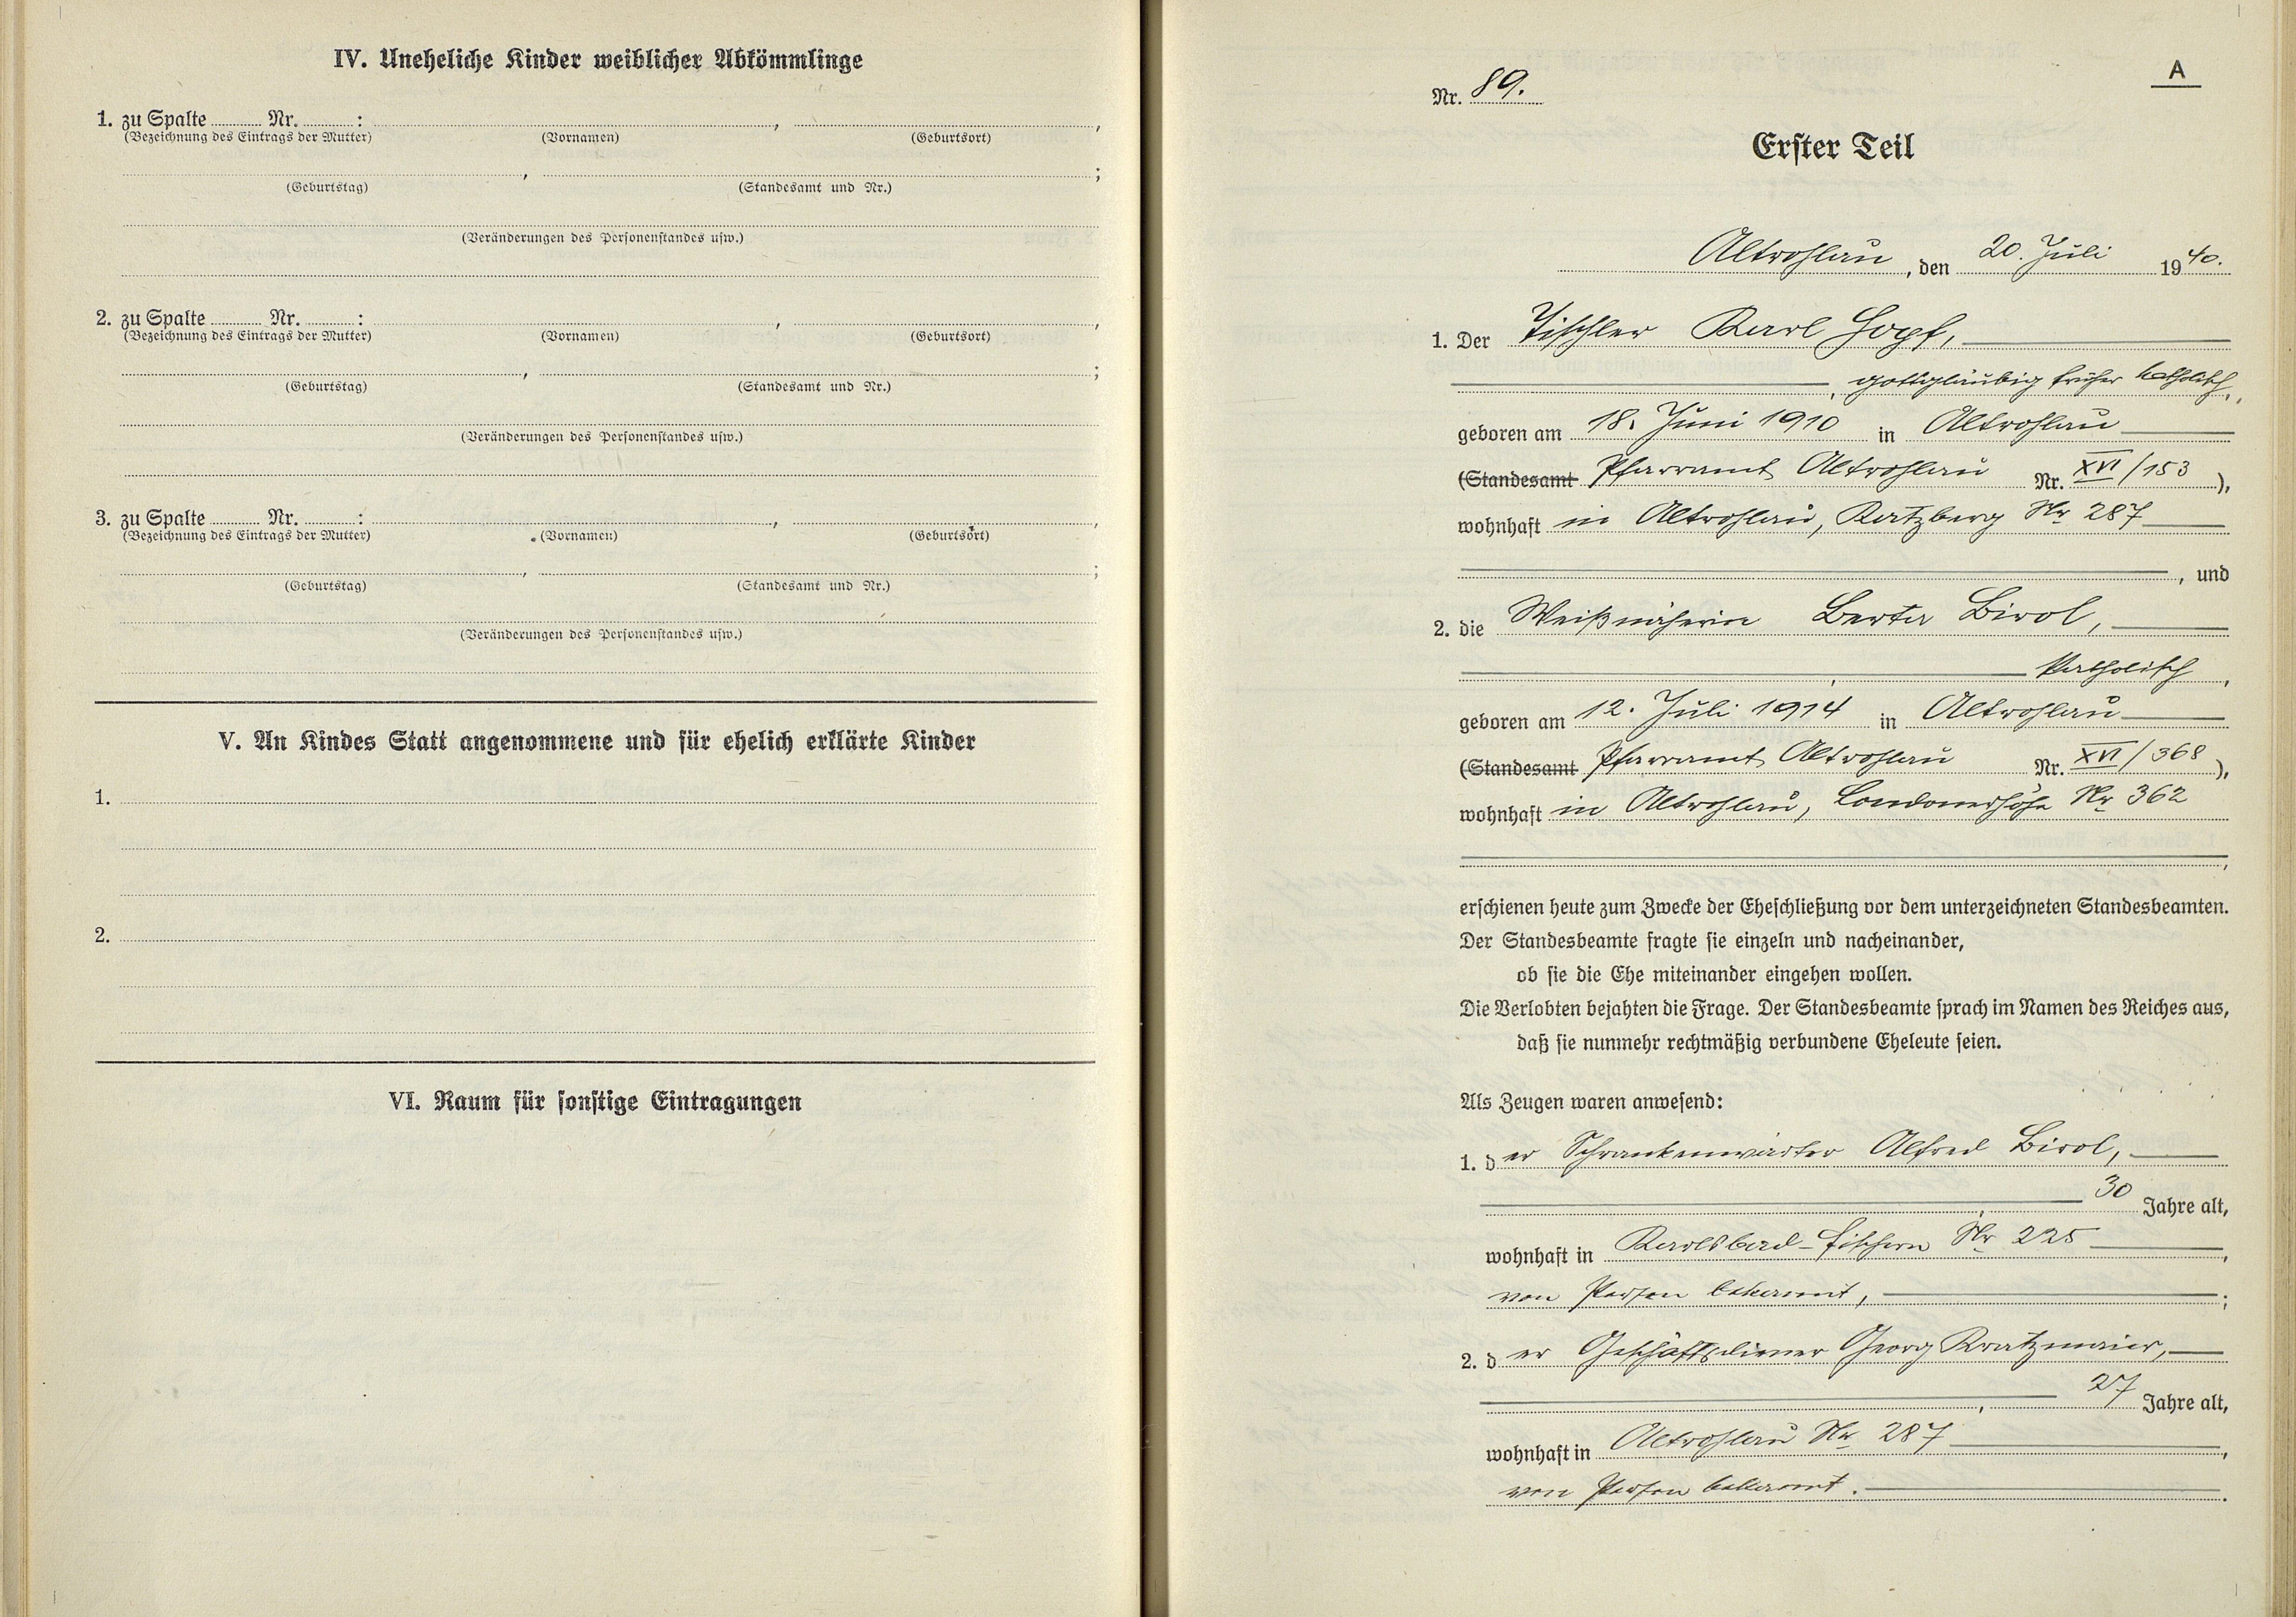 IV. Uneheliche Kinder weiblicher Abkömmlinge
1. zu Spalte ........ Nr. ........ : ........ , ........ ,
(Bezeichnung des Eintrags der Mutter) (Vornamen) (Geburtsort)
........ , ........ ;
(Geburtstag) (Standesamt und Nr.)
(Veränderungen des Personenstandes usw.)
2. zu Spalte ........ Nr. ........ : ........ , ........ ,
(Bezeichnung des Eintrags der Mutter) (Vornamen) (Geburtsort)
........ , ........ ;
(Geburtstag) (Standesamt und Nr.)
(Veränderungen des Personenstandes usw.)
3. zu Spalte ........ Nr. ........ : ........ , ........ ,
(Bezeichnung des Eintrags der Mutter) (Vornamen) (Geburtsort)
........ , ........ ;
(Geburtstag) (Standesamt und Nr.)
(Veränderungen des Personenstandes usw.)
V. An Kindes Statt angenommene und für ehelich erklärte Kinder
1.
2.
VI. Raum für sonstige Eintragungen
A
Nr. 89.
Erster Teil
Altrohlau, den 20. Juli 1940.
1. Der Tischler Karl Hopf,
, gottgläubig früher katholisch,
geboren am 18. Juni 1910 in Altrohlau
(Standesamt Pfarramt Altrohlau Nr. XVI/153),
wohnhaft in Altrohlau, Katzberg Nr 287
, und
2. die Weißnäherin Berta Birol,
, katholisch,
geboren am 12. Juli 1914 in Altrohlau
(Standesamt Pfarramt Altrohlau Nr. XVI/368),
wohnhaft in Altrohlau, Londonerhöhe Nr 362
,
erschienen heute zum Zwecke der Eheschließung vor dem unterzeichneten Standesbeamten.
Der Standesbeamte fragte sie einzeln und nacheinander,
ob sie die Ehe miteinander eingehen wollen.
Die Verlobten bejahten die Frage. Der Standesbeamte sprach im Namen des Reiches aus,
daß sie nunmehr rechtmäßig verbundene Eheleute seien.
Als Zeugen waren anwesend:
1. der Schrankenwärter Alfred Birol,
, 30 Jahre alt,
wohnhaft in Karlsbad-Fischern Nr 225,
von Person bekannt, ;
2. der Geschäftsdiener Georg Kratzmaier,
, 27 Jahre alt,
wohnhaft in Altrohlau Nr 287,
von Person bekannt.